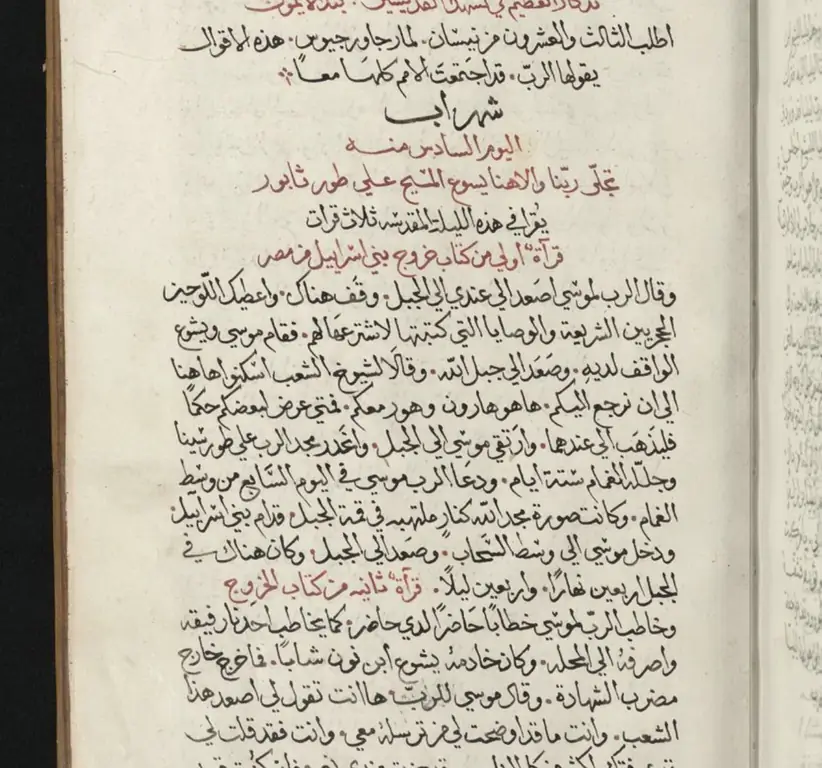 اطلب الثالث والعشرون من نيسان. لمار جاورجيوس. هذه الاقوال
يقولها الربّ. قد اجتمعت الامم كلها معاً
شهر أب
اليوم السادس منه
تجلّى ربّنا والاهنا يسوع المسيح على طور ثابور
يُقرا في هذه الليلة المقدسه ثلاث قرات
قرآة اولي من كتاب خروج بني اسراييل من مصر
وقال الرب لموسي اصعد الي عندي الي الجبل. وقف هناك. واعطيك اللّوحين
الحجريين الشريعة والوصايا التي كتبتها لاشترعها لهم. فقام موسي ويشوع
الواقف لديه. وصَعَدَ الي جبل الله. وقالا لشيوخ الشعب اسكنوا هاهنا
الي ان نرجع اليكم. هاهو هارون وهور معكم. فمتي عرض لبعضكم حكماً
فليذهب الي عندهما. وارتقي موسي الي الجبل. وانحدر مجد الرب علي طور سينا
وجلله الغمام ستة ايام. ودعا الرب موسي في اليوم السَّابع من وسط
الغمام. وكانت صورة مجد الله كنار ملتهبه في قمة الجبل. قدام بني اسراييل.
ودخل موسي الي وسط السَّحاب. وصَعد الي الجبل. وكان هناك في
الجبل اربعين نهاراً. واربعين ليلاً. قرآة ثانيه من كتاب الخروج
وخاطب الربّ لموسي خطاباً حَاضراً لدي حاضر. كما يخاطب احدنا رفيقه
واصرفهُ الي المحله. وكان خادمهُ يشوع أبن نون شاباً. فاخرج خارج
مضرب الشهادة. وقال موسي للربّ. ها انت تقول لي اصعد هذا
الشعب. وانت ما قد اوضحت لي من ترسلهُ معي. وانت فقد قلت لي